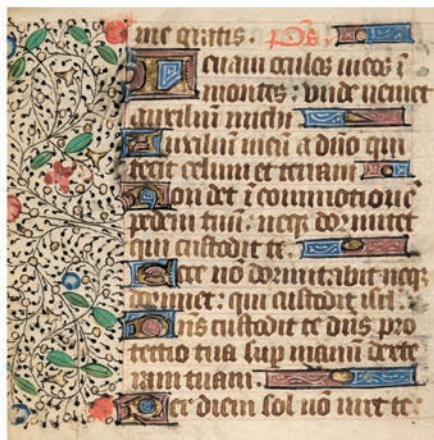 me gratis. p̄s.
Leuaui oculos meos ī
montes : vnde ueniet
auxiliū michi
Auxiliū meū a dño qui
fecit celum et terram
Non det ī cōmotionē
pedem tuū : neqꝫ dormitet
qui custodit te.
Ecce nō dormitabit neqꝫ
dormiet : qui custodit isrl̄.
Dn̄s custodit te dn̄s pro
tectio tua sup manum dexte
ram tuam.
Per diem sol nō uret te :